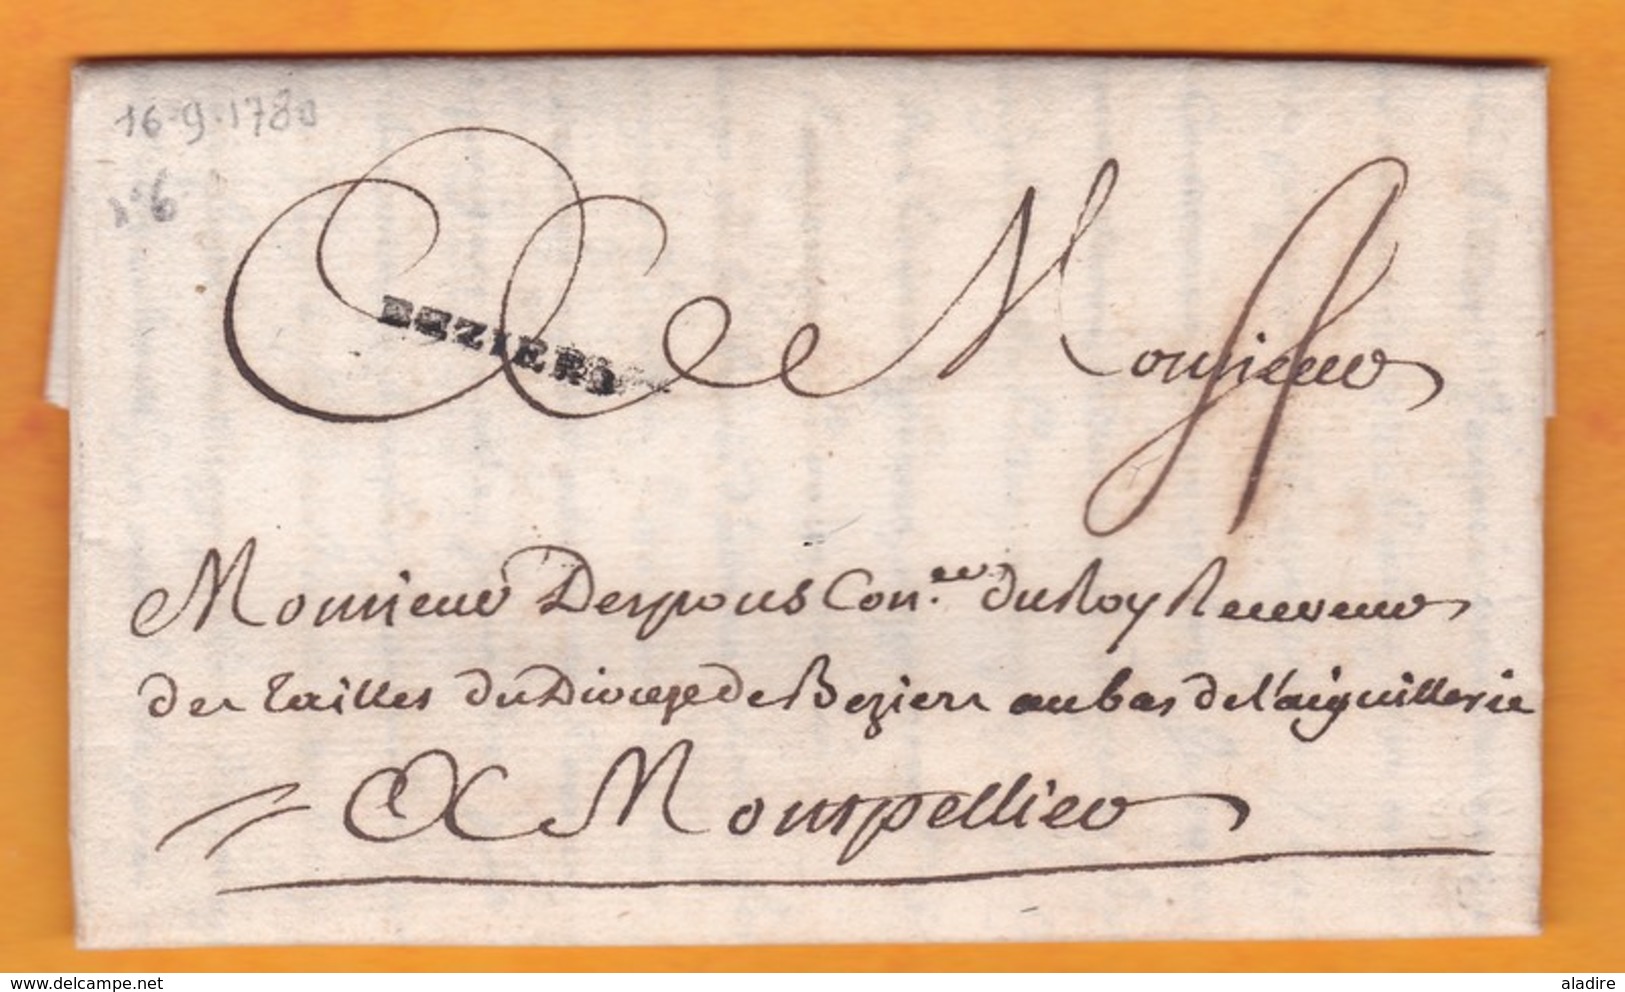 16-9-1780
n°6
BEZIERS
Monsieur
Monsieur Despous Con.er du Roy Receveur
des tailles du Dioceze de Beziers au bas de l'aiguillerie
A Montpellier
delcampe.net
aladire